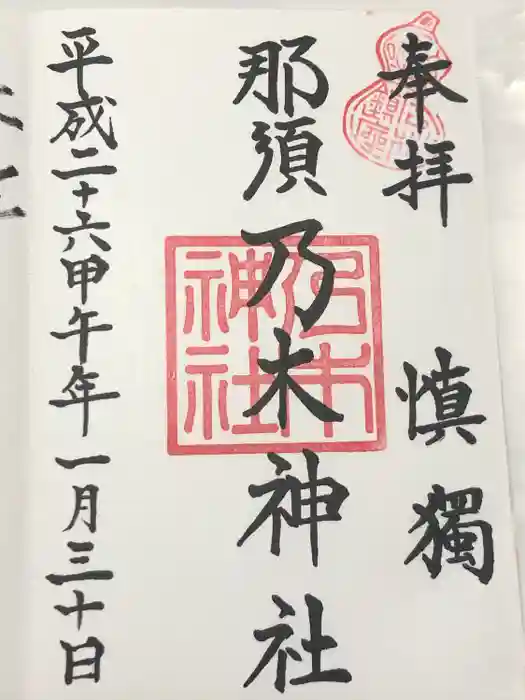 奉拝
慎獨
那須乃木神社
乃木神社
平成二十六甲午年一月三十日